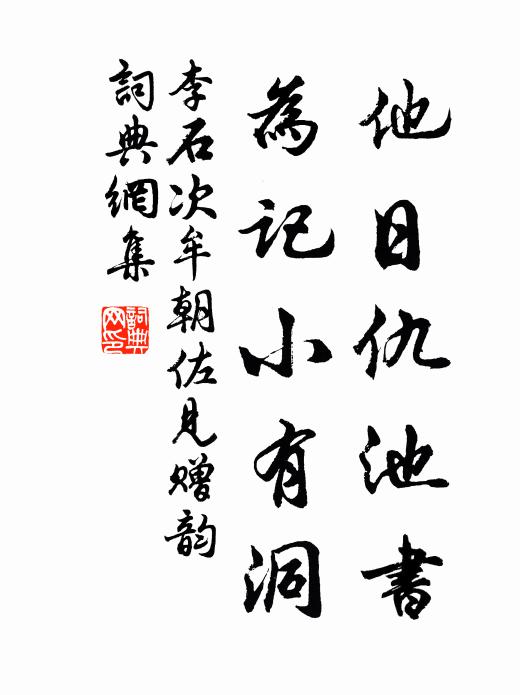 他日仇池書
為記小有洞
李石次牟朝佐見贈韵
詞典網集
詞典网印